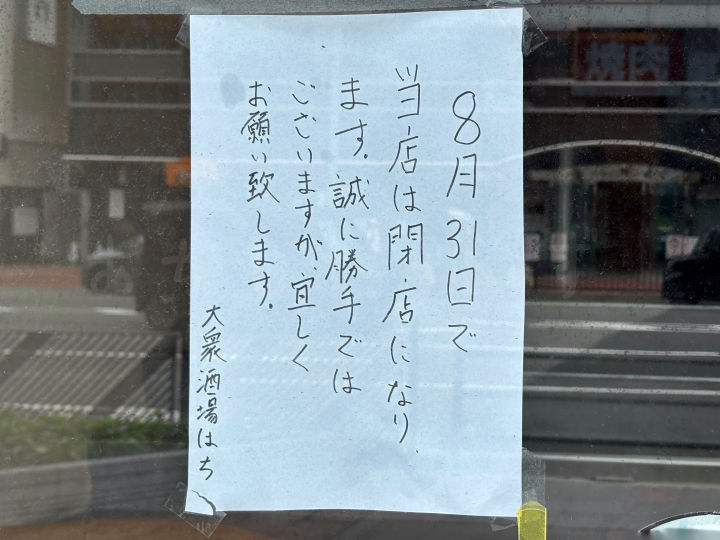 8月31日で
当店は閉店になり
ます。誠に勝手では
ございますが、宜しく
お願い致します。
大衆酒場はち
焼肉